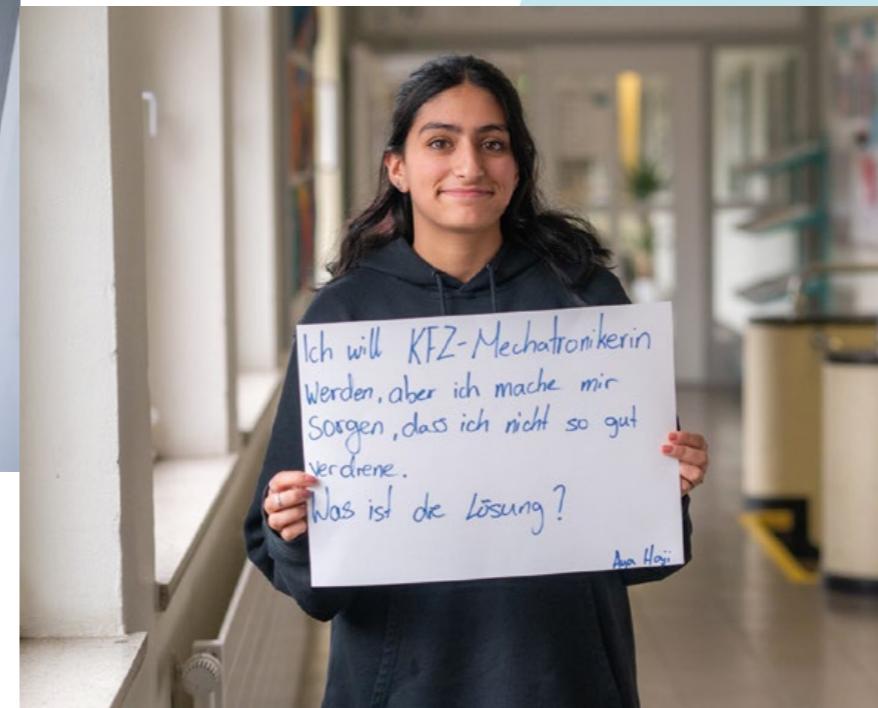 Ich will KFZ-Mechatronikerin
werden, aber ich mache mir
Sorgen, dass ich nicht so gut
verdiene.
Was ist die Lösung?
Aya Haji